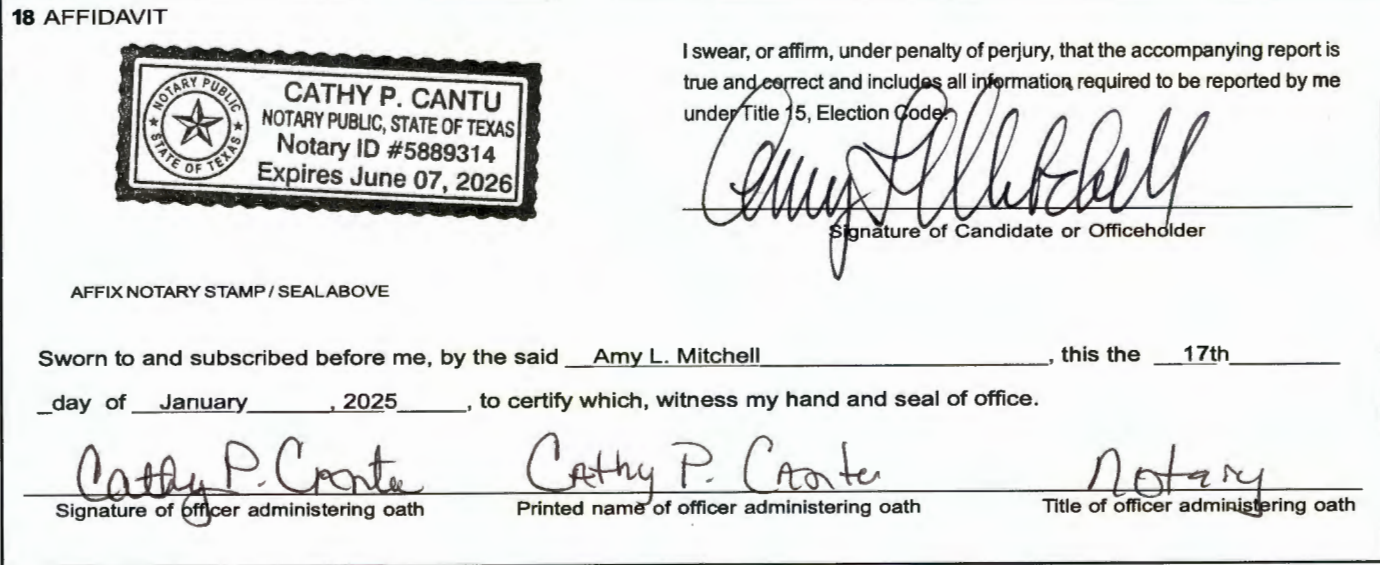 18 AFFIDAVIT
NOTARY PUBLIC
STATE OF TEXAS
CATHY P. CANTU
NOTARY PUBLIC, STATE OF TEXAS
Notary ID #5889314
Expires June 07, 2026
I swear, or affirm, under penalty of perjury, that the accompanying report is
true and correct and includes all information required to be reported by me
under Title 15, Election Code.
Amy L Mitchell
Signature of Candidate or Officeholder
AFFIX NOTARY STAMP / SEAL ABOVE
Sworn to and subscribed before me, by the said Amy L. Mitchell, this the 17th
day of January, 2025, to certify which, witness my hand and seal of office.
Cathy P. Cantu Cathy P. Cantu Notary
Signature of officer administering oath Printed name of officer administering oath Title of officer administering oath